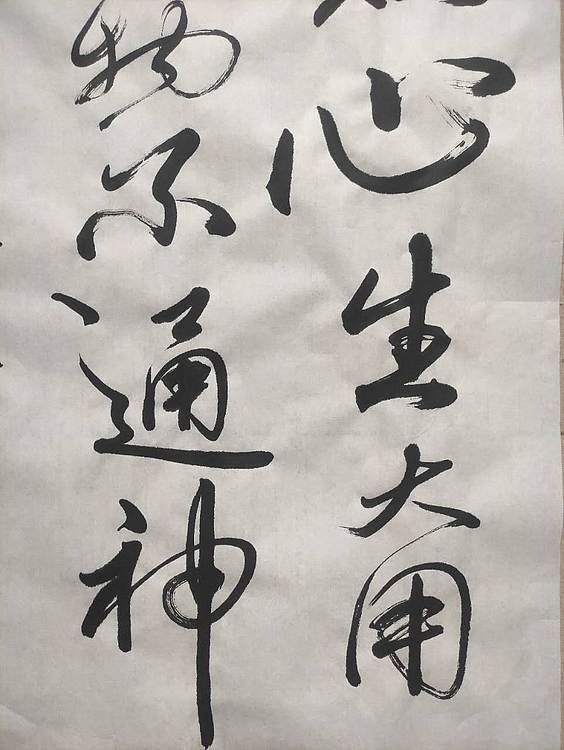 心生大用
物不通神